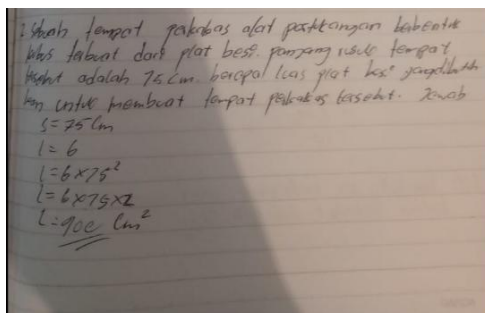 1. Sebuah tempat perkakas alat pertukangan berbentuk
kubus terbuat dari plat besi. panjang rusuk tempat
tersebut adalah 75 cm. berapa luas plat besi yang dibutuh
kan untuk membuat tempat perkakas tersebut. Jawab
s = 75 cm
l = 6
l = 6 x 75²
l = 6 x 75 x 2
l = 900 cm²